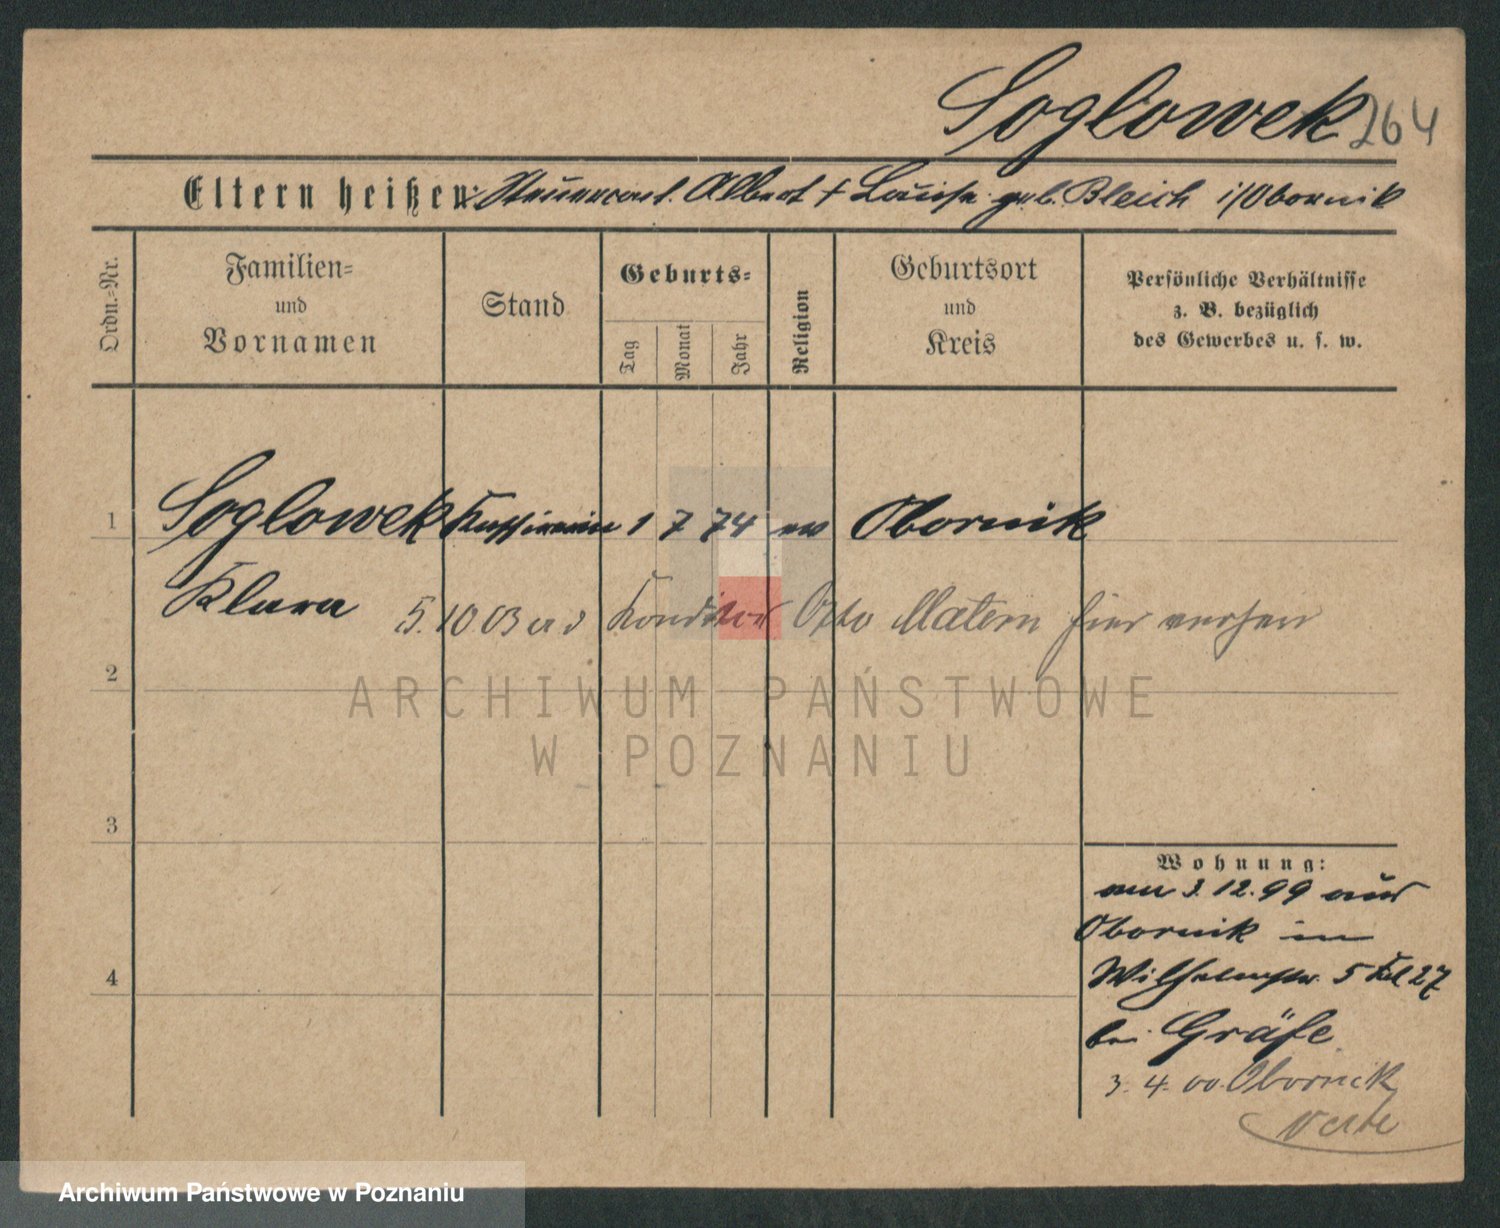 Soglowek 264
Eltern heißen: Albert † Louise geb. Bleich i/Obornik
Ordn.-Nr.
Familien-
und
Vornamen
Stand
Geburts-
Tag
Monat
Jahr
Religion
Geburtsort
und
Kreis
Persönliche Verhältnisse
z. B. bezüglich
des Gewerbes u. s. w.
1 Soglowek Kassirerin 1 7 74 ev Obornik
Klara 5.10 03 Konditor Otto Matern hier
2
ARCHIWUM PAŃSTWOWE
W POZNANIU
3
Wohnung:
am 3.12.99 aus
Obornik in
Wilhelmstr. 5 27
bei Gräfe
4
3. 4. 00. Obornik
verte
Archiwum Państwowe w Poznaniu